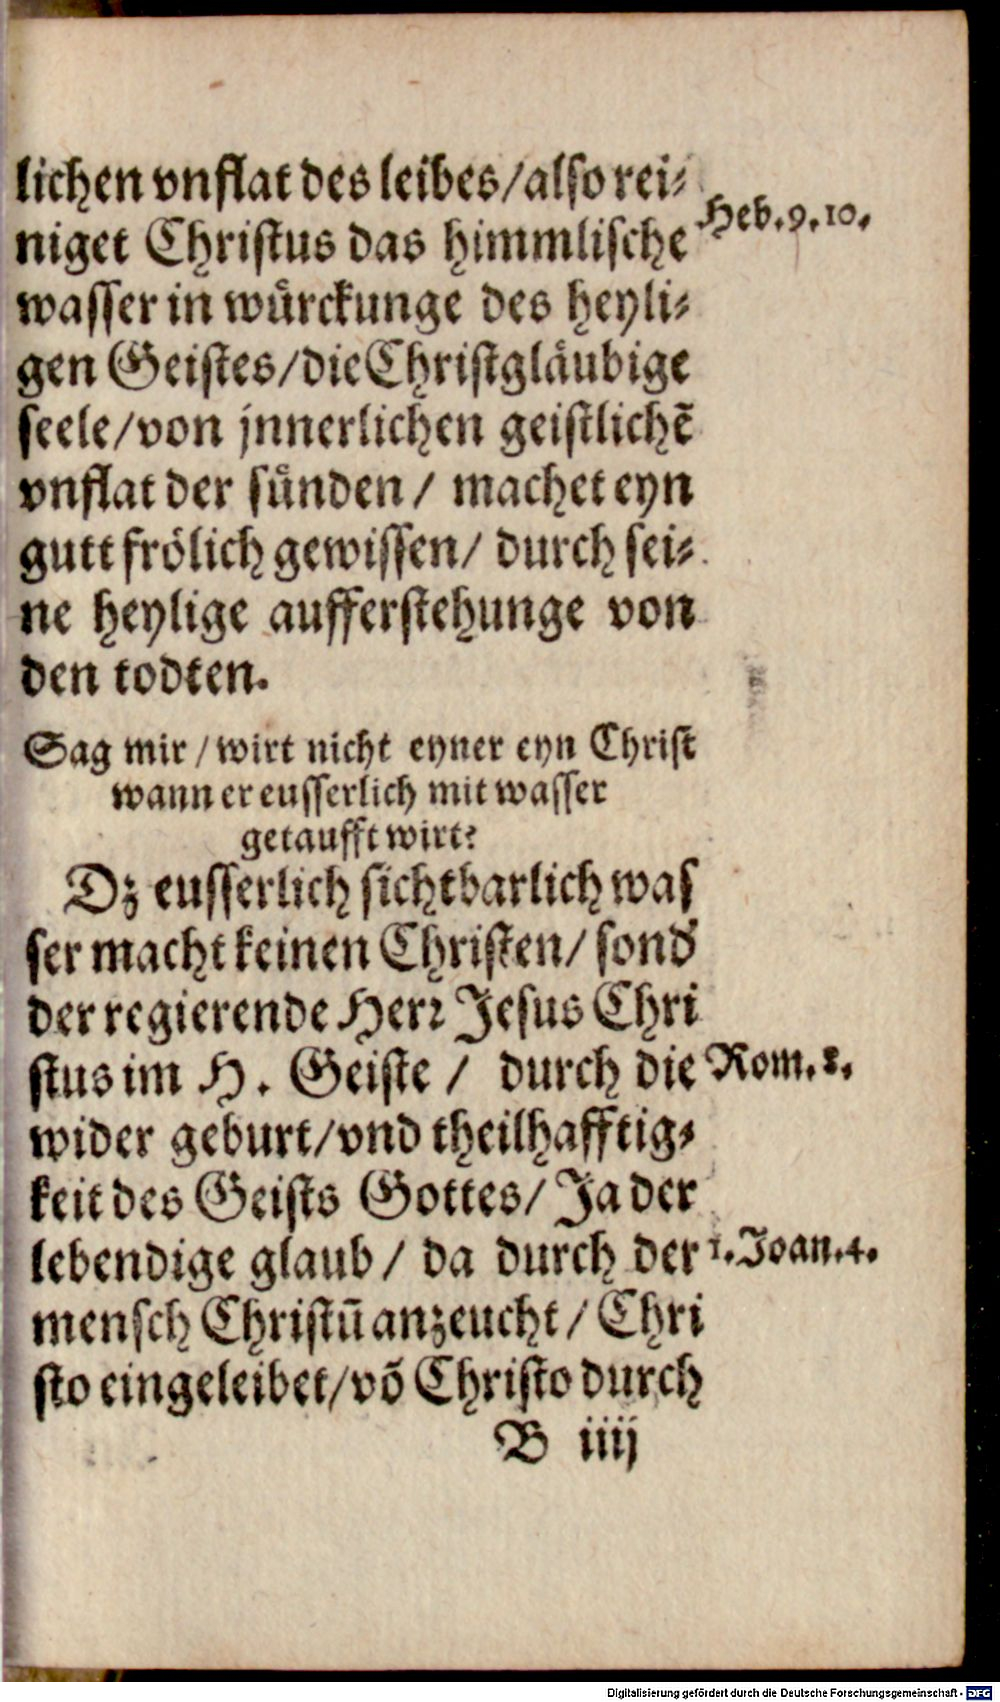 lichen vnflat des leibes/also rei⸗
niget Christus das himmlische
Heb.9.10.
wasser in wuͤrckunge des heyli⸗
gen Geistes/die Christglaͤubige
seele/von jnnerlichen geistlichẽ
vnflat der suͤnden/ machet eyn
gutt froͤlich gewissen/ durch sei⸗
ne heylige aufferstehunge von
den todten.
Sag mir/wirt nicht eyner eyn Christ
wann er eusserlich mit wasser
getaufft wirt?
Dz eusserlich sichtbarlich was
ser macht keinen Christen/ sond
der regierende Herr Jesus Chri
stus im H. Geiste / durch die
Rom.8.
wider geburt/vnd theilhafftig⸗
keit des Geists Gottes/ Ja der
lebendige glaub / da durch der
1.Joan.4.
mensch Christū anzeucht/ Chri
sto eingeleibet/võ Christo durch
B iiij
Digitalisierung gefördert durch die Deutsche Forschungsgemeinschaft - DFG